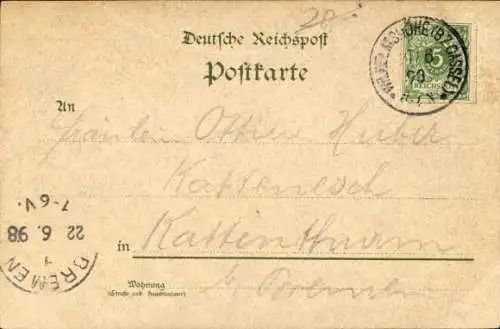 20.-
Deutsche Reichspost
Postkarte
WILHELMSHÖHE (BZ CASSEL)
6
98
5
REICHS
An
Fräulein Ottilie Huber
Kattenesch
in Kattenthurm
b/ Bremen
Wohnung
(Straße und Hausnummer)
BREMEN
1
22. 6. 98
7-6V.